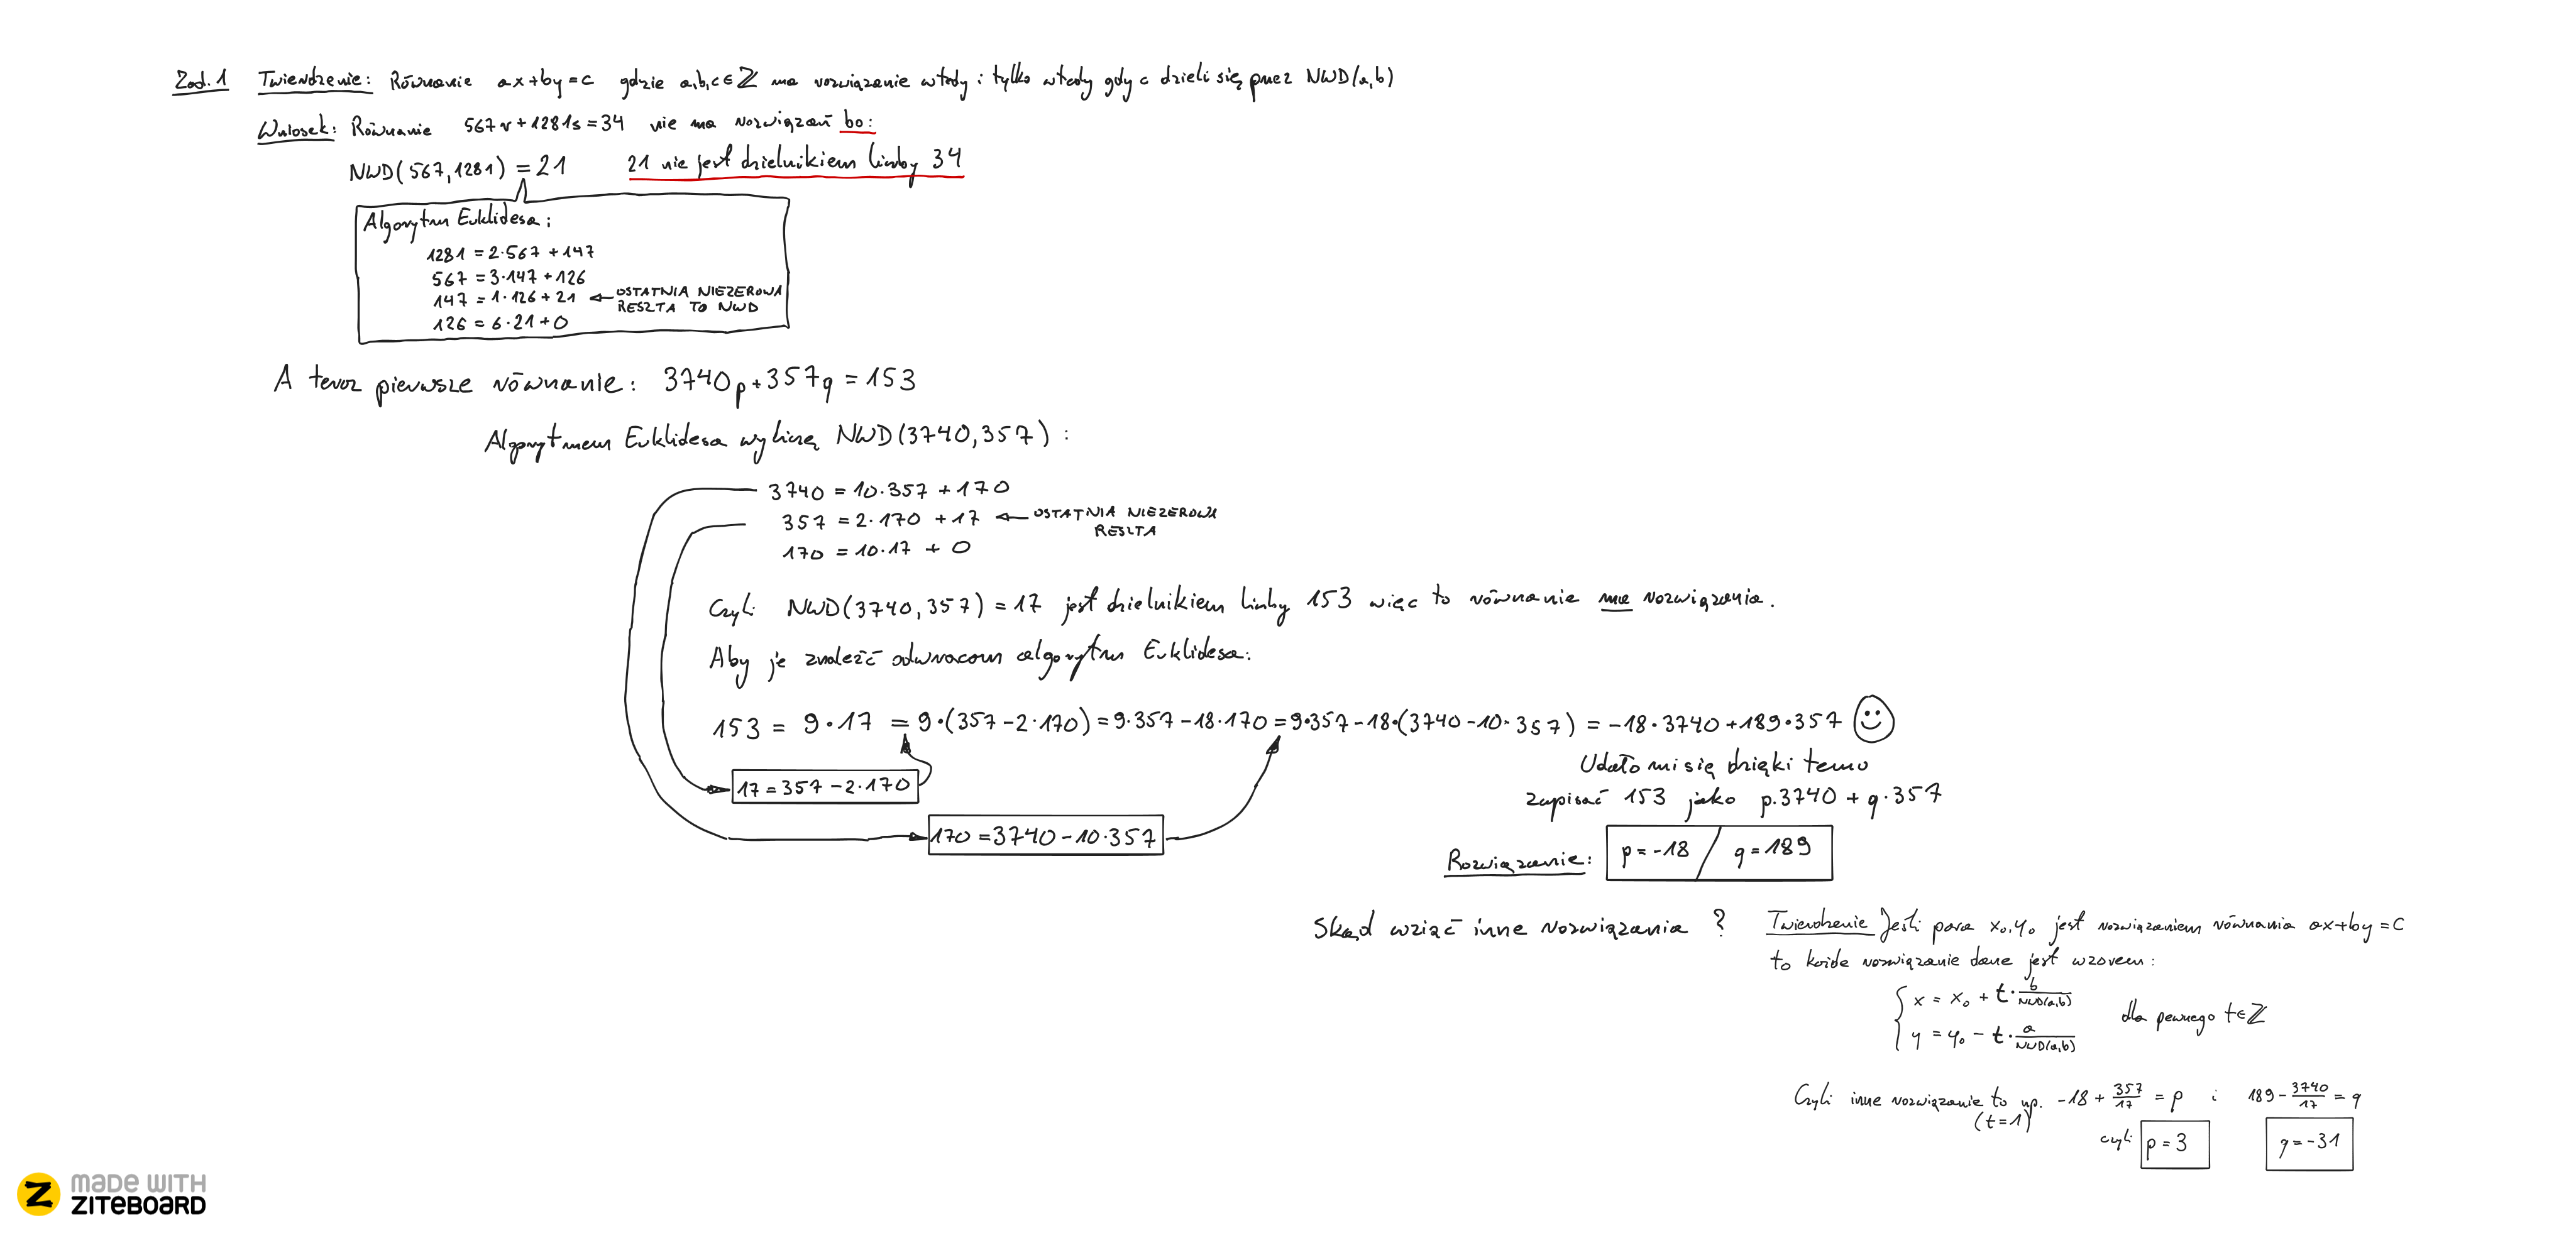 Zad. 1 Twierdzenie: Równanie ax+by=c gdzie a,b,c∈ℤ ma rozwiązanie wtedy i tylko wtedy gdy c dzieli się przez NWD(a,b)
Wniosek: Równanie 567r+1281s=34 nie ma rozwiązań bo:
NWD(567,1281)=21 21 nie jest dzielnikiem liczby 34
Algorytm Euklidesa:
1281=2·567+147
567=3·147+126
147=1·126+21 ← OSTATNIA NIEZEROWA
RESZTA TO NWD
126=6·21+0
A teraz pierwsze równanie: 3740p+357q=153
Algorytmem Euklidesa wyliczę NWD(3740,357):
3740=10·357+170
357=2·170+17 ← OSTATNIA NIEZEROWA
RESZTA
170=10·17+0
Czyli NWD(3740,357)=17 jest dzielnikiem liczby 153 więc to równanie ma rozwiązania.
Aby je znaleźć odwracam algorytm Euklidesa:
153 = 9·17 = 9·(357-2·170)=9·357-18·170=9·357-18·(3740-10·357) = -18·3740+189·357
17=357-2·170
170=3740-10·357
Udało mi się dzięki temu
zapisać 153 jako p·3740+q·357
Rozwiązanie: p=-18 / q=189
Skąd wziąć inne rozwiązania? Twierdzenie Jeśli para x₀,y₀ jest rozwiązaniem równania ax+by=c
to każde rozwiązanie dane jest wzorem:
x = x₀ + t·b/NWD(a,b)
y = y₀ - t·a/NWD(a,b)
dla pewnego t∈ℤ
Czyli inne rozwiązanie to np. -18+357/17=p i 189-3740/17=q
(t=1)
czyli p=3 q=-31
MADE WITH
ZITEBOARD